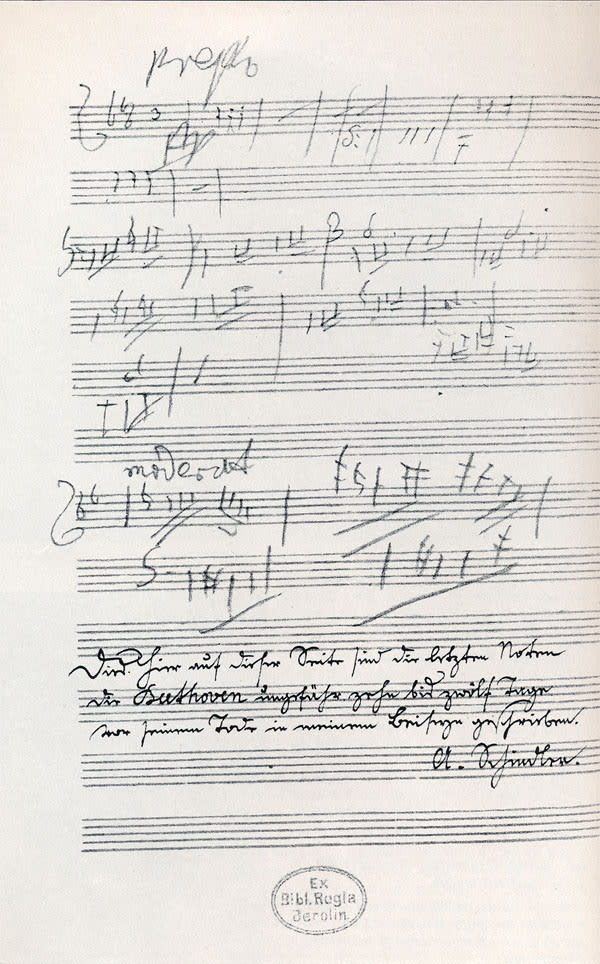 moderat
Dies hier auf dieser Seite sind die letzten Noten
die Beethoven ungefähr zehn bis zwölf Tage
vor seinem Tode in meinem Beiseyn geschrieben.
A. Schindler.
Ex
Bibl. Regia
Berolin.